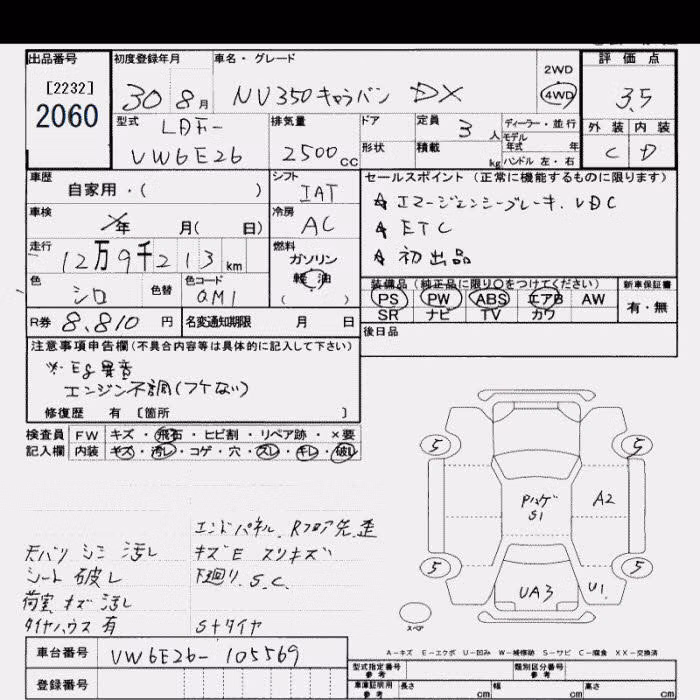 出品番号 初度登録年月 車名・グレード 評価点
[2232]
2060
30 8月 NV350キャラバン DX 2WD 4WD 3.5
型式 LDF- VW6E26
排気量 2500cc
ドア 形状
定員 3人
積載 kg
ディーラー・並行
モデル年式 年
ハンドル 左・右
外装 内装
C D
車歴 自家用・( )
シフト IAT
車検 年 月( 日)
冷房 AC
走行 12万9千213km
燃料 ガソリン
(軽油)
色 シロ 色替 色コード QM1
R券 8,810円 名変通知期限 月 日
セールスポイント (正常に機能するものに限ります)
☆ エマージェンシーブレーキ. VDC
☆ ETC
☆ 初出品
装備品 (純正品に限り○をつけてください) 新車保証書
PS PW ABS エアB AW 有・無
SR ナビ TV カワ
後日品
注意事項申告欄(不具合内容等は具体的に記入して下さい)
※ Eg異音
エンジン不調(フケない)
修復歴 有 [箇所 ]
検査員 FW キズ・飛石・ヒビ割・リペア跡・×要
記入欄 内装 キズ・汚レ・コゲ・穴・スレ・キレ・破レ
エンドパネル、Rフロア先 歪
天バリ シミ 汚レ キズE スリキズ
シート 破レ 下廻り. S.C.
荷室 キズ 汚レ
タイヤハウス 有 Sタイヤ
5 5
Pハゲ
S1
A2
5 5
UA3
U1
スペア
A-キズ E-エクボ U-凹み W-補修跡 S-サビ C-腐食 XX-交換済
車台番号 VW6E26-105569
登録番号
型式指定番号 参考 類別区分番号 参考
車庫証明用 参考 長さ cm 幅 cm 高さ cm